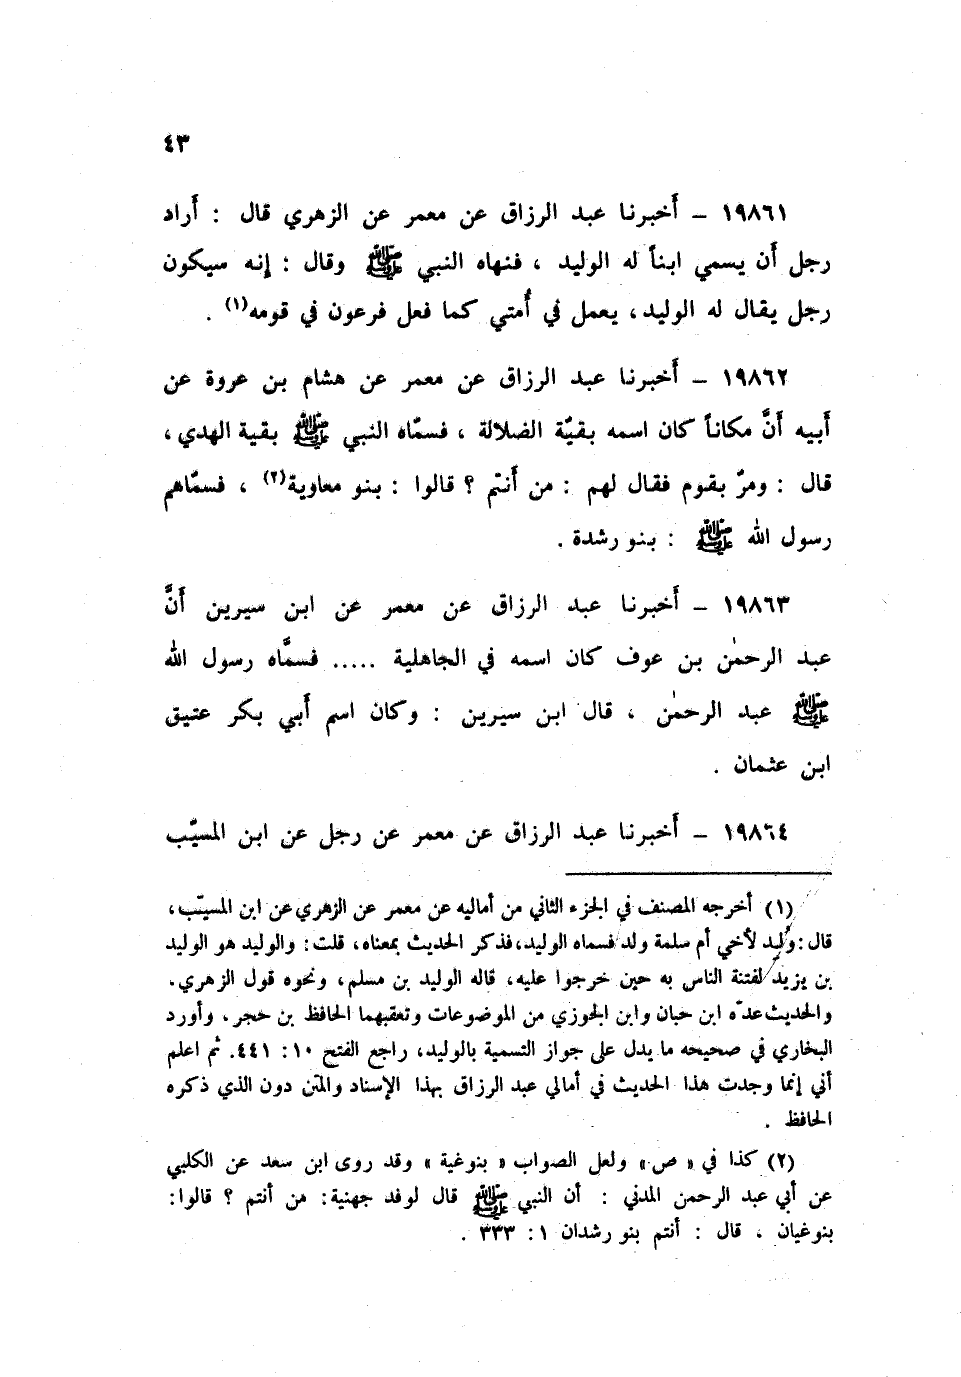 ٤٣
١٩٨٦١ – أَخبرنا عبد الرزاق عن معمر عن الزهري قال : أَراد
رجل أَن يسمي ابناً له الوليد ، فنهاه النبي ﷺ وقال : إنه سيكون
رجل يقال له الوليد، يعمل في أُمتي كما فعل فرعون في قومه(١) .
١٩٨٦٢ – أَخبرنا عبد الرزاق عن معمر عن هشام بن عروة عن
أَبيه أَنَّ مكاناً كان اسمه بقيّة الضلالة ، فسمّاه النبي ﷺ بقية الهدي ،
قال : ومرّ بقوم فقال لهم : من أَنتم ؟ قالوا : بنو معاوية(٢) ، فسمّاهم
رسول الله ﷺ : بنو رشدة .
١٩٨٦٣ – أَخبرنا عبد الرزاق عن معمر عن ابن سيرين أَنَّ
عبد الرحمٰن بن عوف كان اسمه في الجاهلية ..... فسمَّاه رسول الله
ﷺ عبد الرحمٰن ، قال ابن سيرين : وكان اسم أَبي بكر عتيق
ابن عثمان .
١٩٨٦٤ – أَخبرنا عبد الرزاق عن معمر عن رجل عن ابن المسيّب
(١) أخرجه المصنف في الجزء الثاني من أماليه عن معمر عن الزهري عن ابن المسيّب،
قال: وُلِد لأخي أم سلمة ولد فسماه الوليد، فذكر الحديث بمعناه، قلت: والوليد هو الوليد
بن يزيد لفتنة الناس به حين خرجوا عليه، قاله الوليد بن مسلم، ونحوه قول الزهري.
والحديث عدّه ابن حبان وابن الجوزي من الموضوعات وتعقبهما الحافظ بن حجر، وأورد
البخاري في صحيحه ما يدل على جواز التسمية بالوليد، راجع الفتح ١٠: ٤٤١. ثم اعلم
أني إنما وجدت هذا الحديث في أمالي عبد الرزاق بهذا الإسناد والمتن دون الذي ذكره
الحافظ .
(٢) كذا في « ص» ولعل الصواب « بنوغية » وقد روى ابن سعد عن الكلبي
عن أبي عبد الرحمن المدني : أن النبي ﷺ قال لوفد جهنية: من أنتم ؟ قالوا:
بنوغيان ، قال : أنتم بنو رشدان ١: ٣٣٣ .